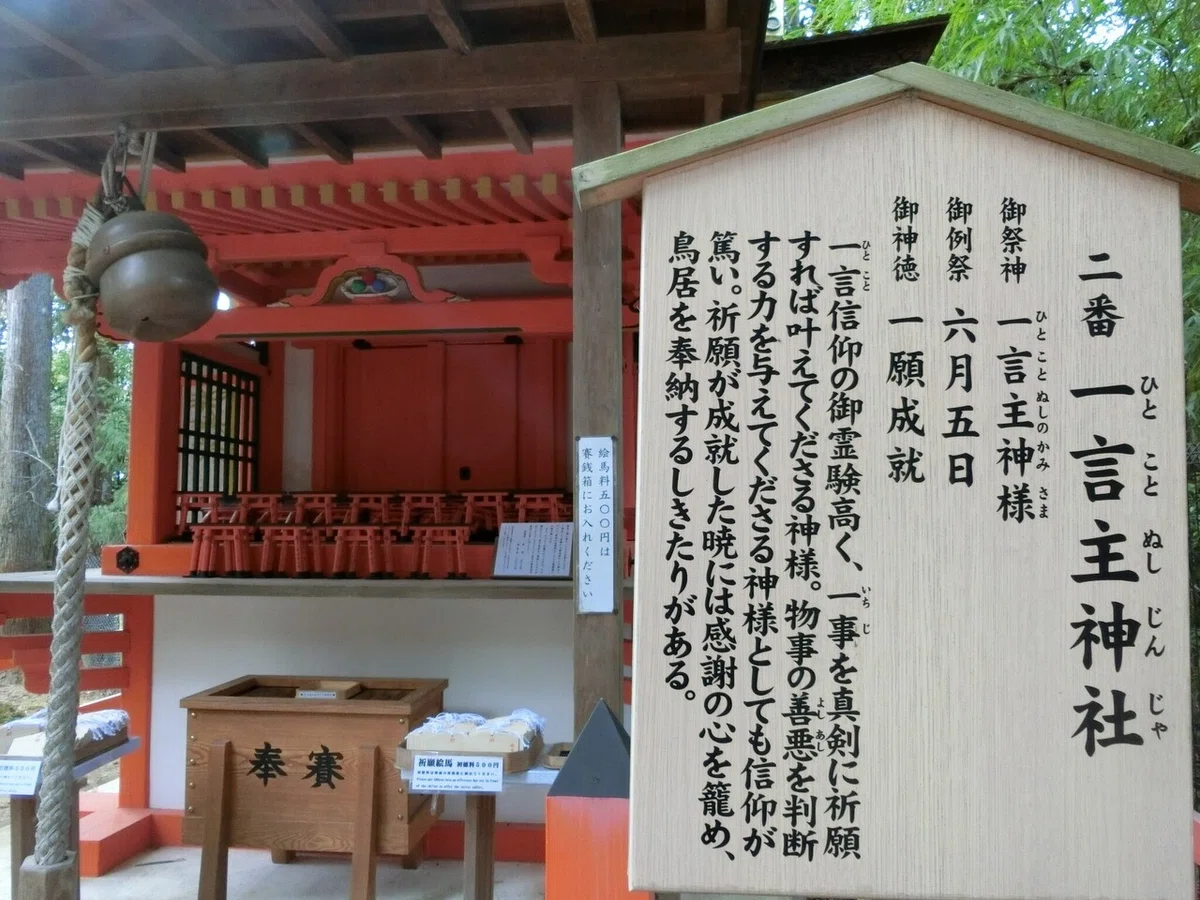 二番 一言主神社
ひと こと ぬし じん じゃ
御祭神 一言主神様
ひと こと ぬしの かみ さま
御例祭 六月五日
御神徳 一願成就
一言信仰の御霊験高く、一事を真剣に祈願
ひと こと いち じ
すれば叶えてくださる神様。物事の善悪を判断
よし あし
する力を与えてくださる神様としても信仰が
篤い。祈願が成就した暁には感謝の心を籠め、
鳥居を奉納するしきたりがある。
絵馬料五〇〇円は
賽銭箱にお入れください
奉賽
祈願絵馬 祈願料500円